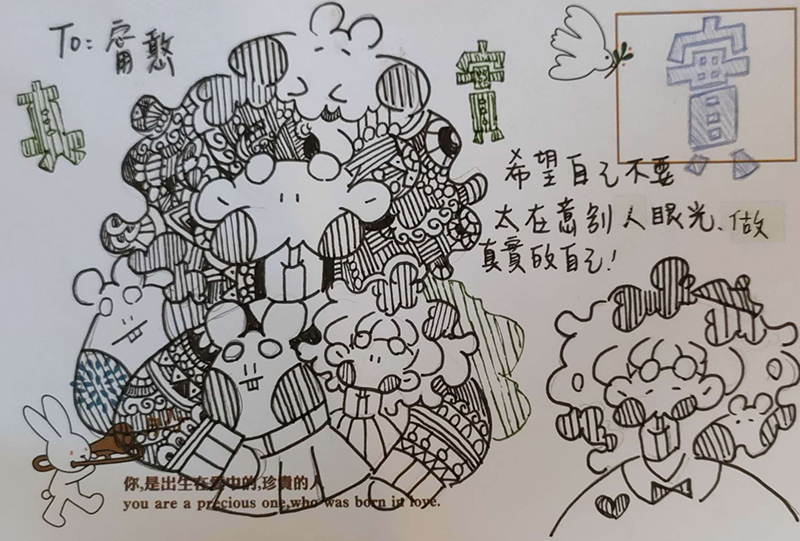 To: 甯憨
真
實
實
希望自己不要
太在意別人眼光、做
真實的自己!
你,是出生在愛中的,珍貴的人
you are a precious one,who was born in love.